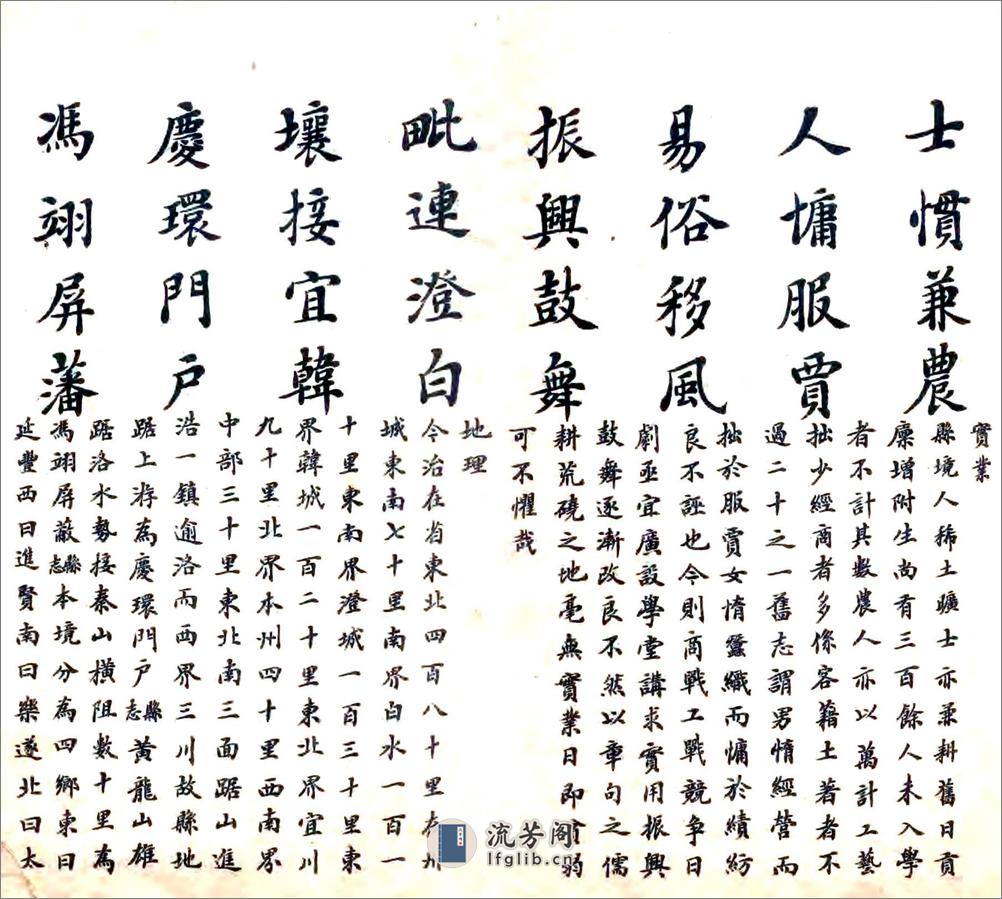 士慣兼農
人墉服賈
易俗移風
振興鼓舞
實業
縣境人稀土曠士亦兼耕舊日貢
廩增附生尚有三百餘人未入學
者不計其數農人亦以萬計工藝
拙少經商者多係客籍土著者不
過二十之一舊志謂男惰經營而
拙於服賈女惰蠶織而慵於績紡
良不誣也今則商戰工戰競爭日
劇亟宜廣設學堂講求實用振興
鼓舞逐漸改良不然以章句之儒
耕荒磽之地毫無實業日即貧弱
可不懼哉
毗連澄白
壤接宜韓
慶環門戶
馮翊屏藩
地理
今治在省東北四百八十里在州
城東南七十里南界白水一百一
十里東南界澄城一百三十里東
界韓城一百二十里東北界宜川
九十里北界本州四十里西南界
中部三十里東北南三面踞山進
浩一鎮逾洛而西界三川故縣地
踞上游為慶環門戶縣志黃龍山雄
踞洛水勢接秦山橫阻數十里為
馮翊屏蔽縣志本境分為四鄉東曰
延豐西曰進賢南曰樂遂北曰太
流芳阁
lfglib.cn